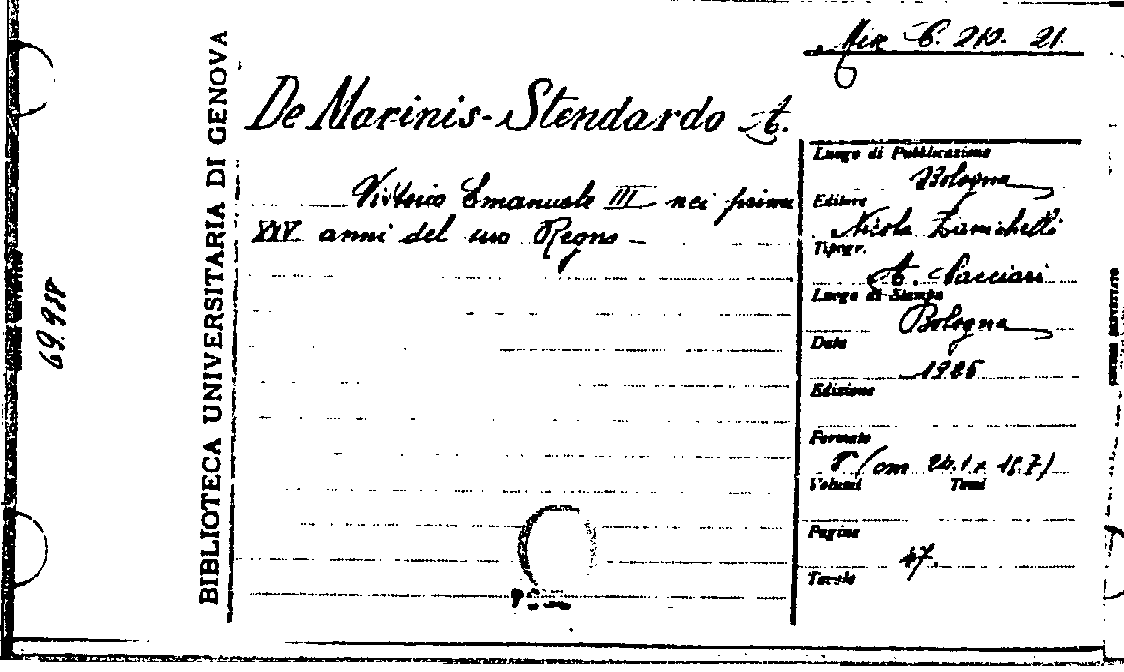 BIBLIOTECA UNIVERSITARIA DI GENOVA
69.988
Misc. C. 210. 21.
De Marinis-Stendardo A.
Vittorio Emanuele III nei primi
XXV anni del suo Regno
Luogo di Pubblicazione
Bologna
Editore
Nicola Zanichelli
Tipogr.
A. Cacciari
Luogo di Stampa
Bologna
Data
1925
Edizione
Formato
8° (cm 24.1 x 15.7)
Volumi Tomi
Pagine
47.
Tavole